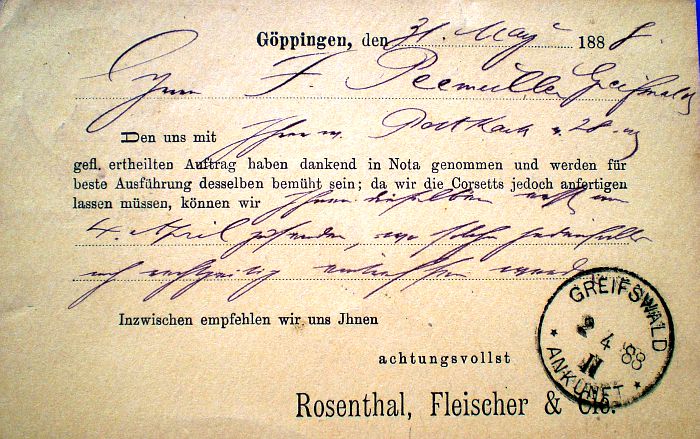 Göppingen, den 31. May 1888.
Herrn F. Peemüller Greifswald
Den uns mit Ihrer w. Postkarte v. 28.
gefl. ertheilten Auftrag haben dankend in Nota genommen und werden für
beste Ausführung desselben bemüht sein; da wir die Corsetts jedoch anfertigen
lassen müssen, können wir Ihnen dieselben erst am
4. April zusenden, wo solche jedenfalls
noch rechtzeitig eintreffen werden
Inzwischen empfehlen wir uns Jhnen
achtungsvollst
Rosenthal, Fleischer & Cie.
GREIFSWALD
2 4 88
II
* ANKUNFT *